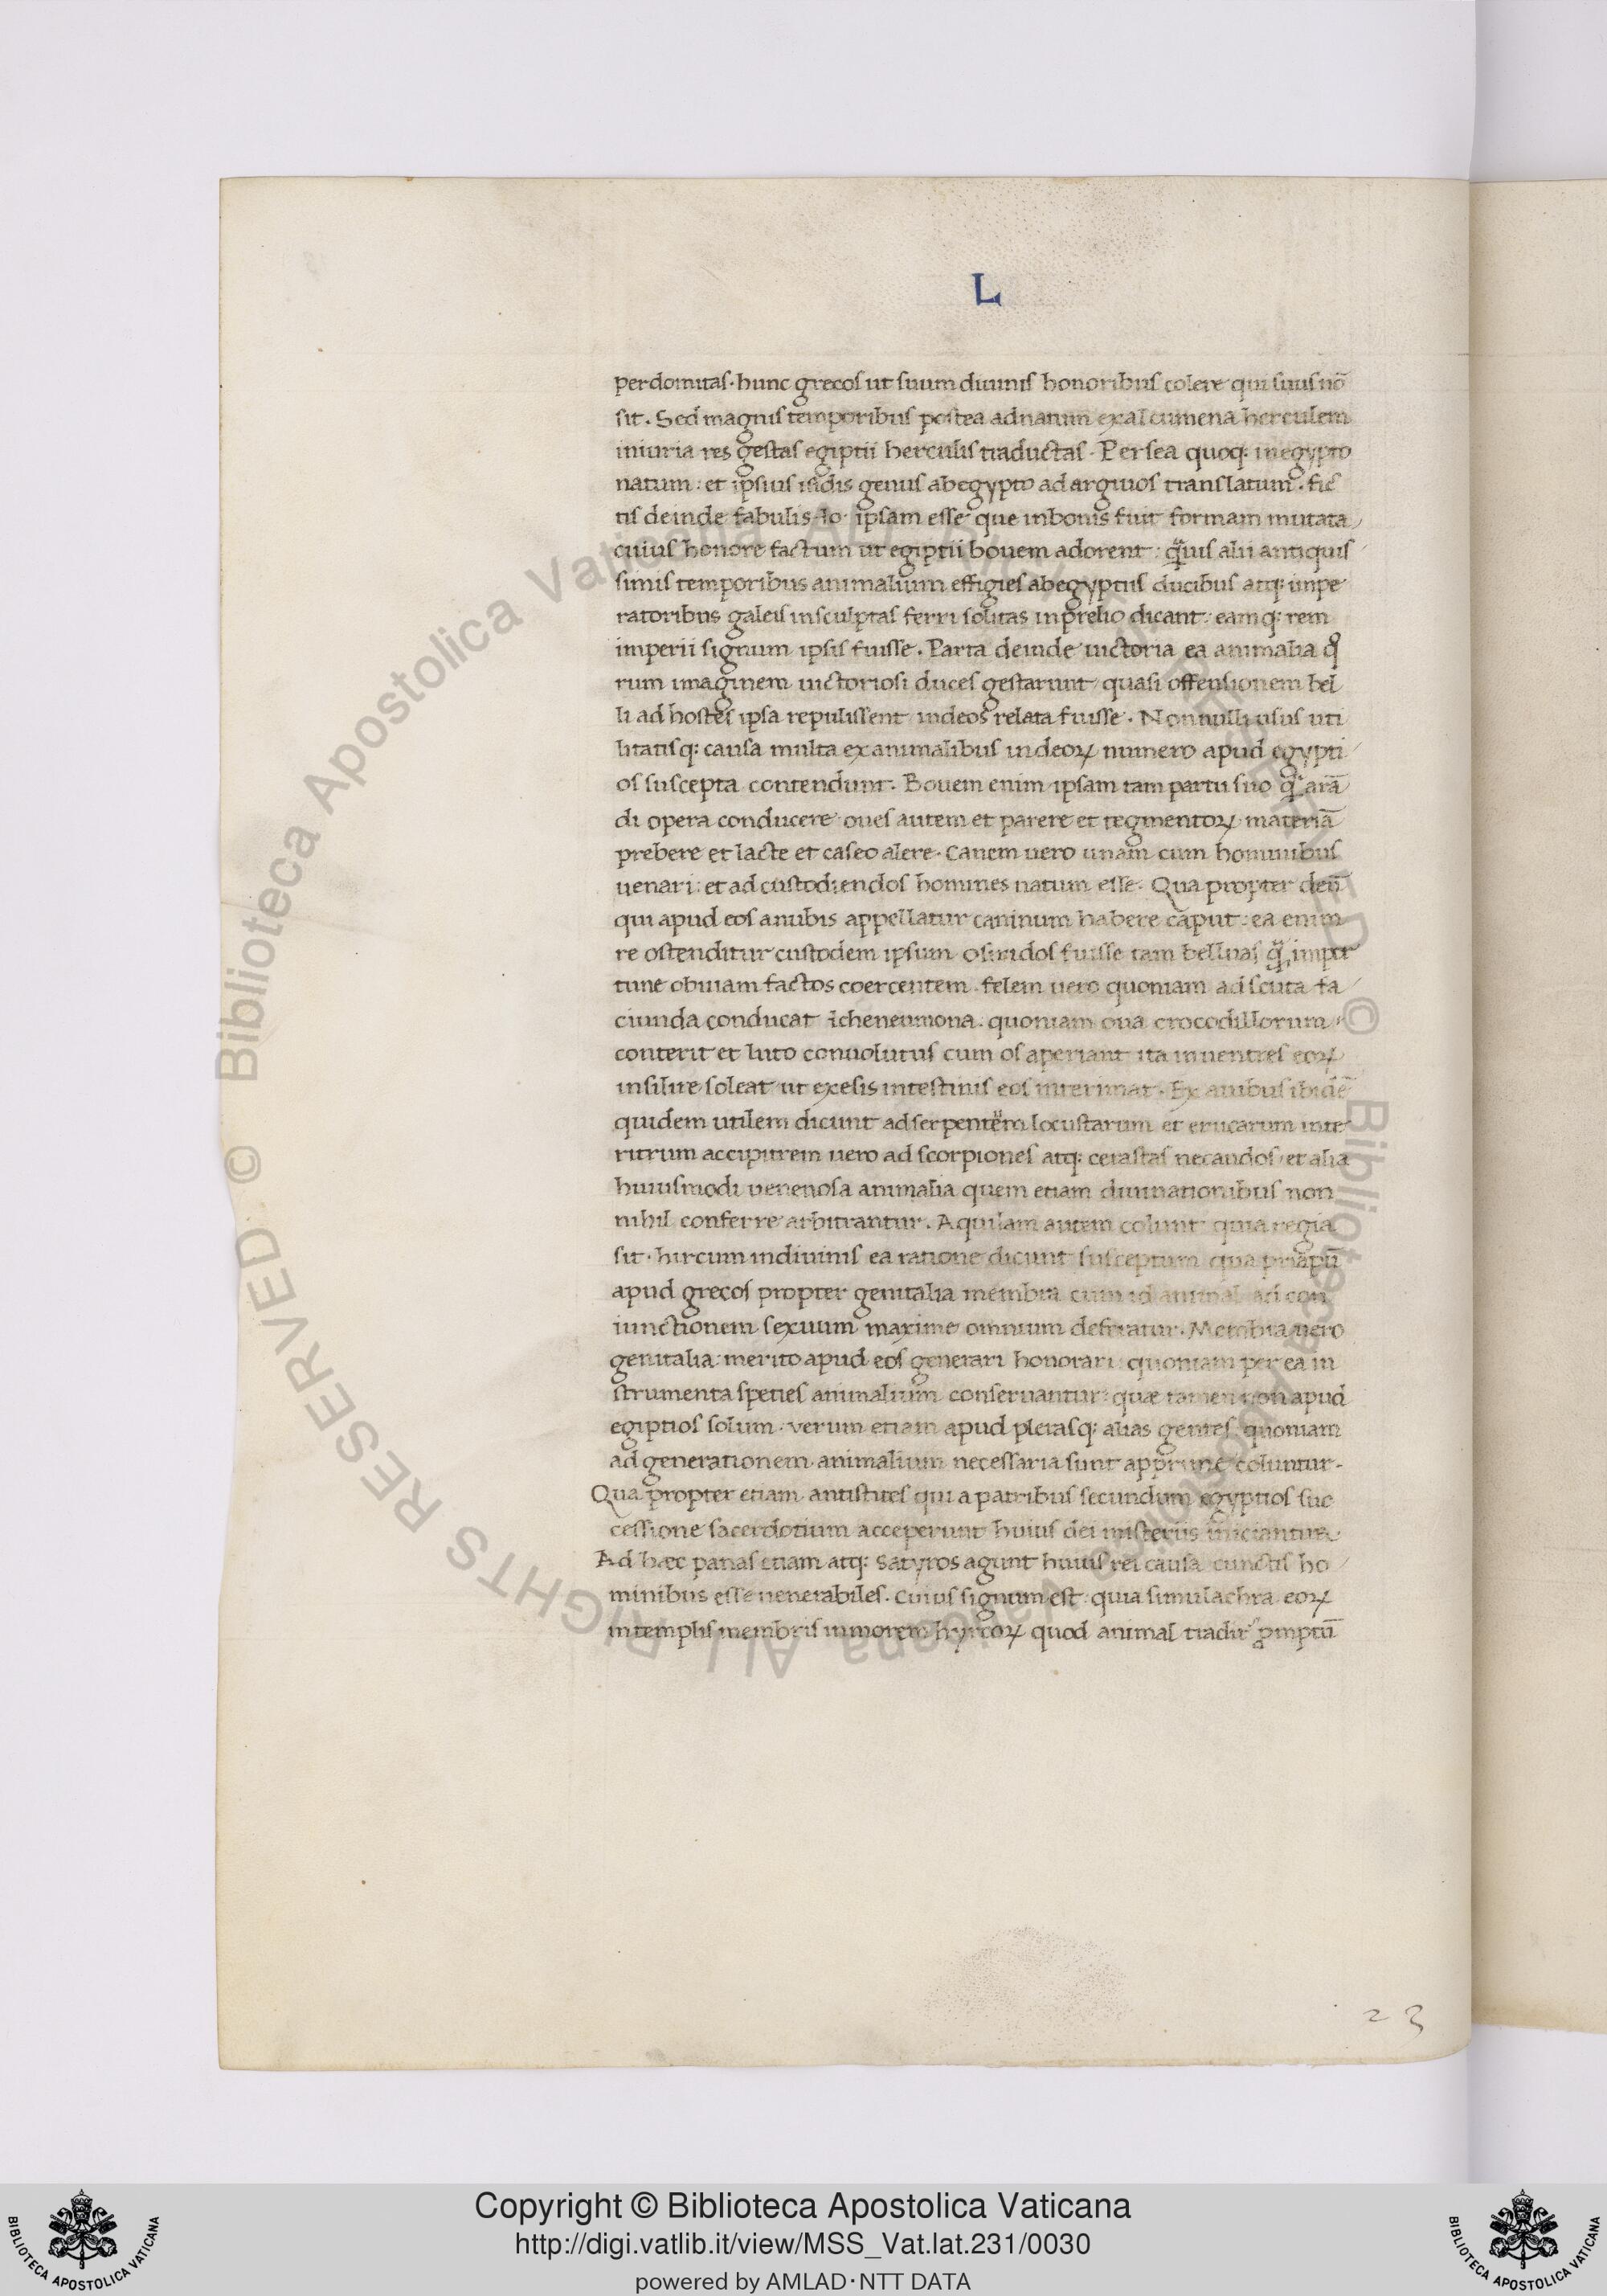 L
perdomitas. hunc grecos ut suum diuinis honoribus colere qui suus nō
sit. Sed magnis temporibus postea ad natum ex alcumena herculem
iniuria res gestas egiptii herculis traductas. Persea quoq: in egypto
natum: et ipsius isidis genus ab egypto ad argiuos translatum. fic
tis deinde fabulis Io ipsam esse que in bouis fuit formam mutata
cuius honore factum ut egiptii bouem adorent: q̄uis alii antiquis
simis temporibus animalium effigies ab egyptiis ducibus atq: impe
ratoribus galeis insculptas ferri solitas in prelio dicant: eamq: rem
imperii signum ipsis fuisse. Parta deinde uictoria ea animalia q̊
rum imaginem uictoriosi duces gestarunt quasi offensionem bel
li ad hostes ipsa repulissent in deos relata fuisse. Nonnulli usus uti
litatisq: causa multa ex animalibus in deoꝝ numero apud egypti
os suscepta contendunt. Bouem enim ipsam tam partu suo q̄ arā
di opera conducere oues autem et parere et tegmentoꝝ materiā
prebere et lacte et caseo alere. Canem uero unam cum hominibus
uenari: et ad custodiendos homines natum esse. Qua propter deū
qui apud eos anubis appellatur caninum habere caput: ea enim
re ostenditur custodem ipsum osiridos fuisse tam belluas q̄ impor
tune obuiam factos coercentem. felem uero quoniam ad scuta fa
ciunda conducat icheneumona. quoniam oua crocodillorum
conterit et luto conuolutus cum os aperiant ita in uentres eoꝝ
insilire soleat ut exesis intestinis eos interimat. Ex auibus ibidē
quidem utilem dicunt ad serpentem locustarum et erucarum inte
ritrum accipitrem uero ad scorpiones atq: cerastas necandos et alia
huiusmodi uenenosa animalia quem etiam diuinationibus non
nihil conferre arbitrantur. Aquilam autem colunt quia regia
sit. hircum in diuinis ea ratione dicunt susceptum qua priapū
apud grecos propter genitalia membra cum id animal ad con
iunctionem sexuum maxime omnium deferatur. Membra uero
genitalia merito apud eos generari honorari: quoniam per ea in
strumenta speties animalium conseruantur: quæ tamen non apud
egiptios solum. verum etiam apud plerasq: alias gentes quoniam
ad generationem animalium necessaria sunt apprime coluntur.
Qua propter etiam antistites qui a patribus secundum egyptios suc
cessione sacerdotium acceperunt huius dei misteriis iniciantur.
Ad hæc panas etiam atq: satyros agunt huius rei causa cunctis ho
minibus esse uenerabiles. Cuius signum est: quia simulachra eoꝝ
in templis membris in morem hyrcoꝝ quod animal tradit᷑ ꝓmptū
23
Copyright © Biblioteca Apostolica Vaticana
http://digi.vatlib.it/view/MSS_Vat.lat.231/0030
powered by AMLAD·NTT DATA
BIBLIOTECA APOSTOLICA VATICANA
BIBLIOTECA APOSTOLICA VATICANA